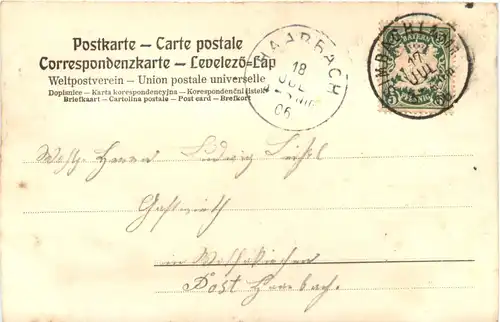 Postkarte — Carte postale
Correspondenzkarte — Levelező-Lap
Weltpostverein — Union postale universelle
Dopisnice — Karta korespondencyjna — Korespondenční lístek
Briefkaart — Cartolina postale — Post card — Brefkort
HAARBACH
18
JUL
06
17
JUL
5
5
Herrn Ludwig
Gastwirth
in Wolfakirchen
Post Haarbach.